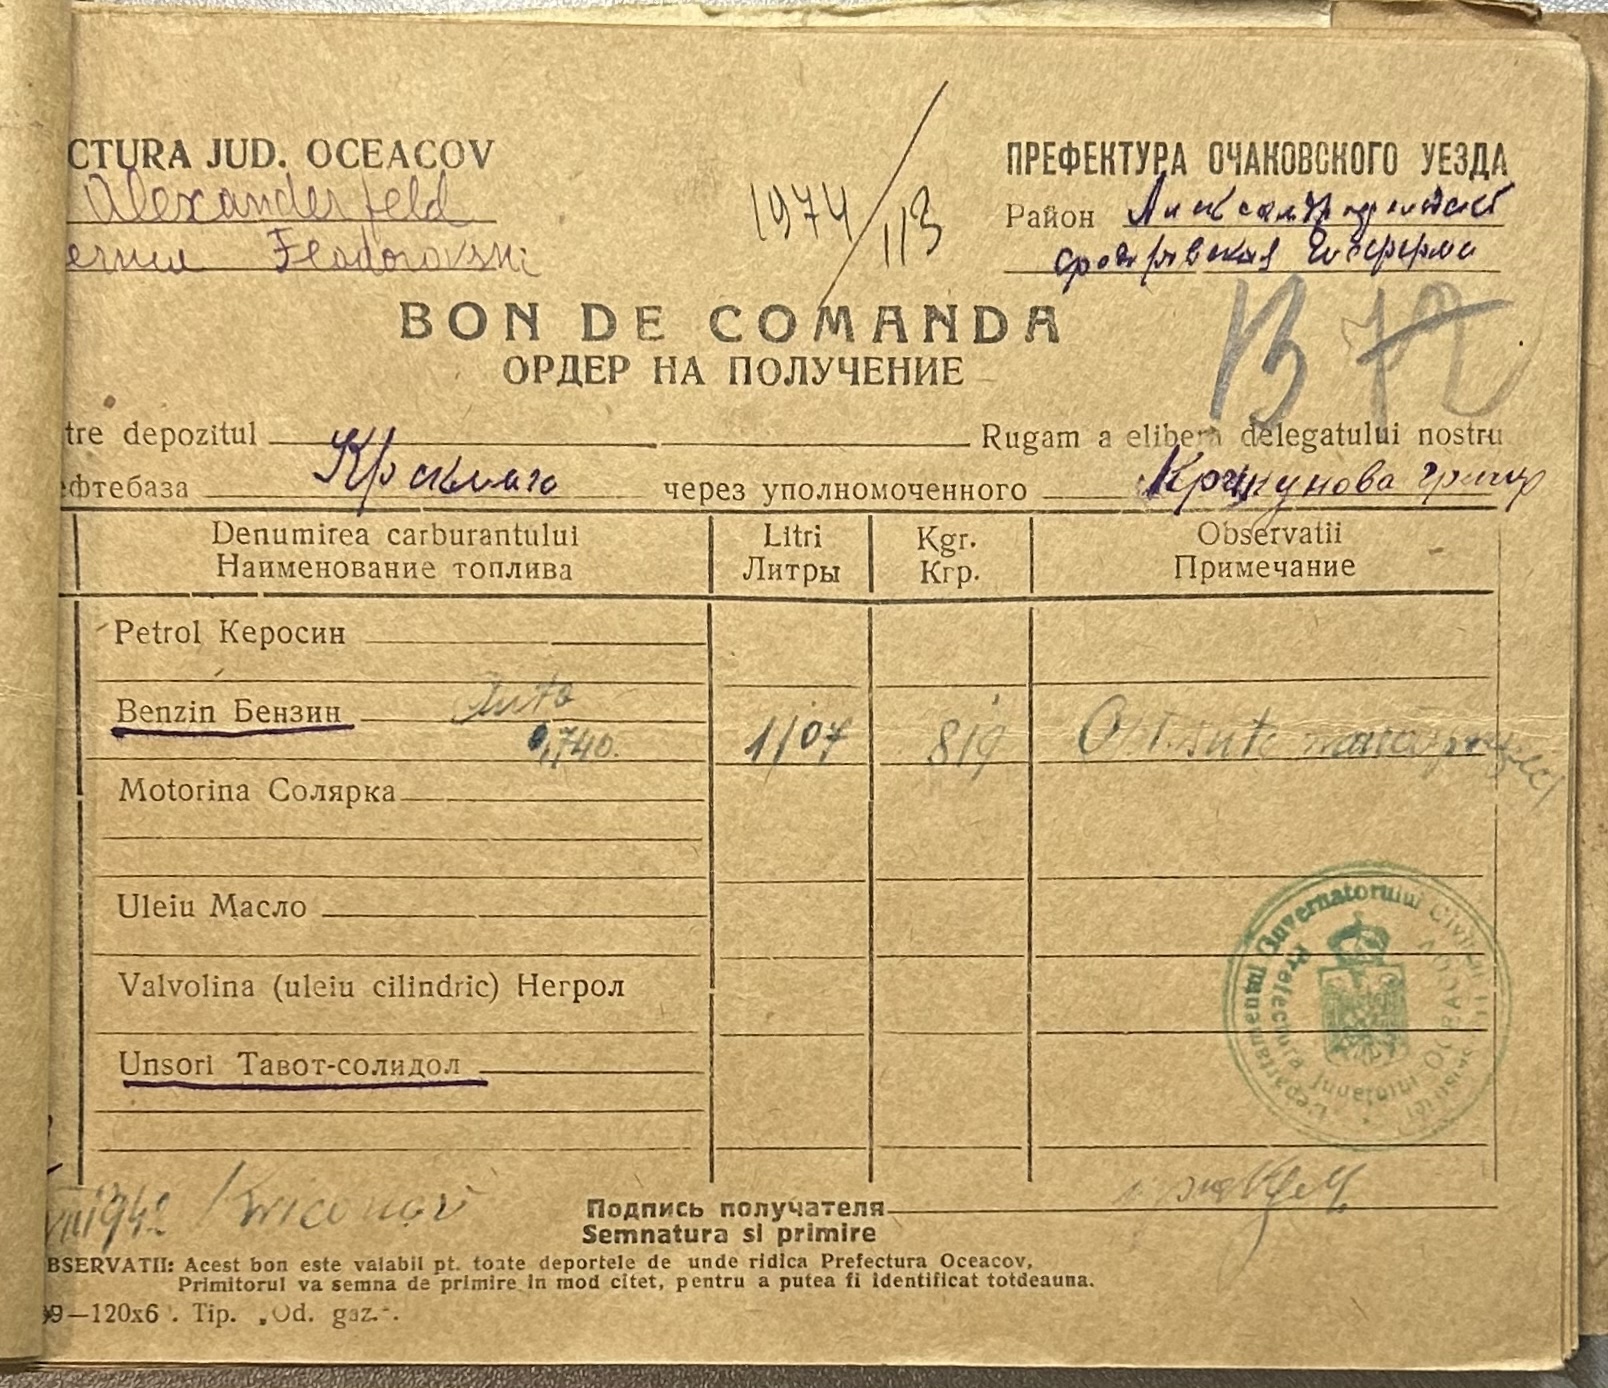 CTURA JUD. OCEACOV
ПРЕФЕКТУРА ОЧАКОВСКОГО УЕЗДА
Alexanderfeld
1974/113
Район
Feodorovski
BON DE COMANDA
ОРДЕР НА ПОЛУЧЕНИЕ
tre depozitul Rugam a elibera delegatului nostru
ефтебаза через уполномоченного
Denumirea carburantului Litri Kgr. Observatii
Наименование топлива Литры Кгр. Примечание
Petrol Керосин
Benzin Бензин Auto
0,740. 1107 819
Motorina Солярка
Uleiu Масло
Valvolina (uleiu cilindric) Негрол
Unsori Тавот-солидол
Guvernatorului Civil
Prefectura Județului Oceacov
VIII 1942
Подпись получателя
Semnatura si primire
BSERVATII: Acest bon este valabil pt. toate deportele de unde ridica Prefectura Oceacov,
Primitorul va semna de primire in mod citet, pentru a putea fi identificat totdeauna.
99—120x6 . Tip. „Od. gaz.".